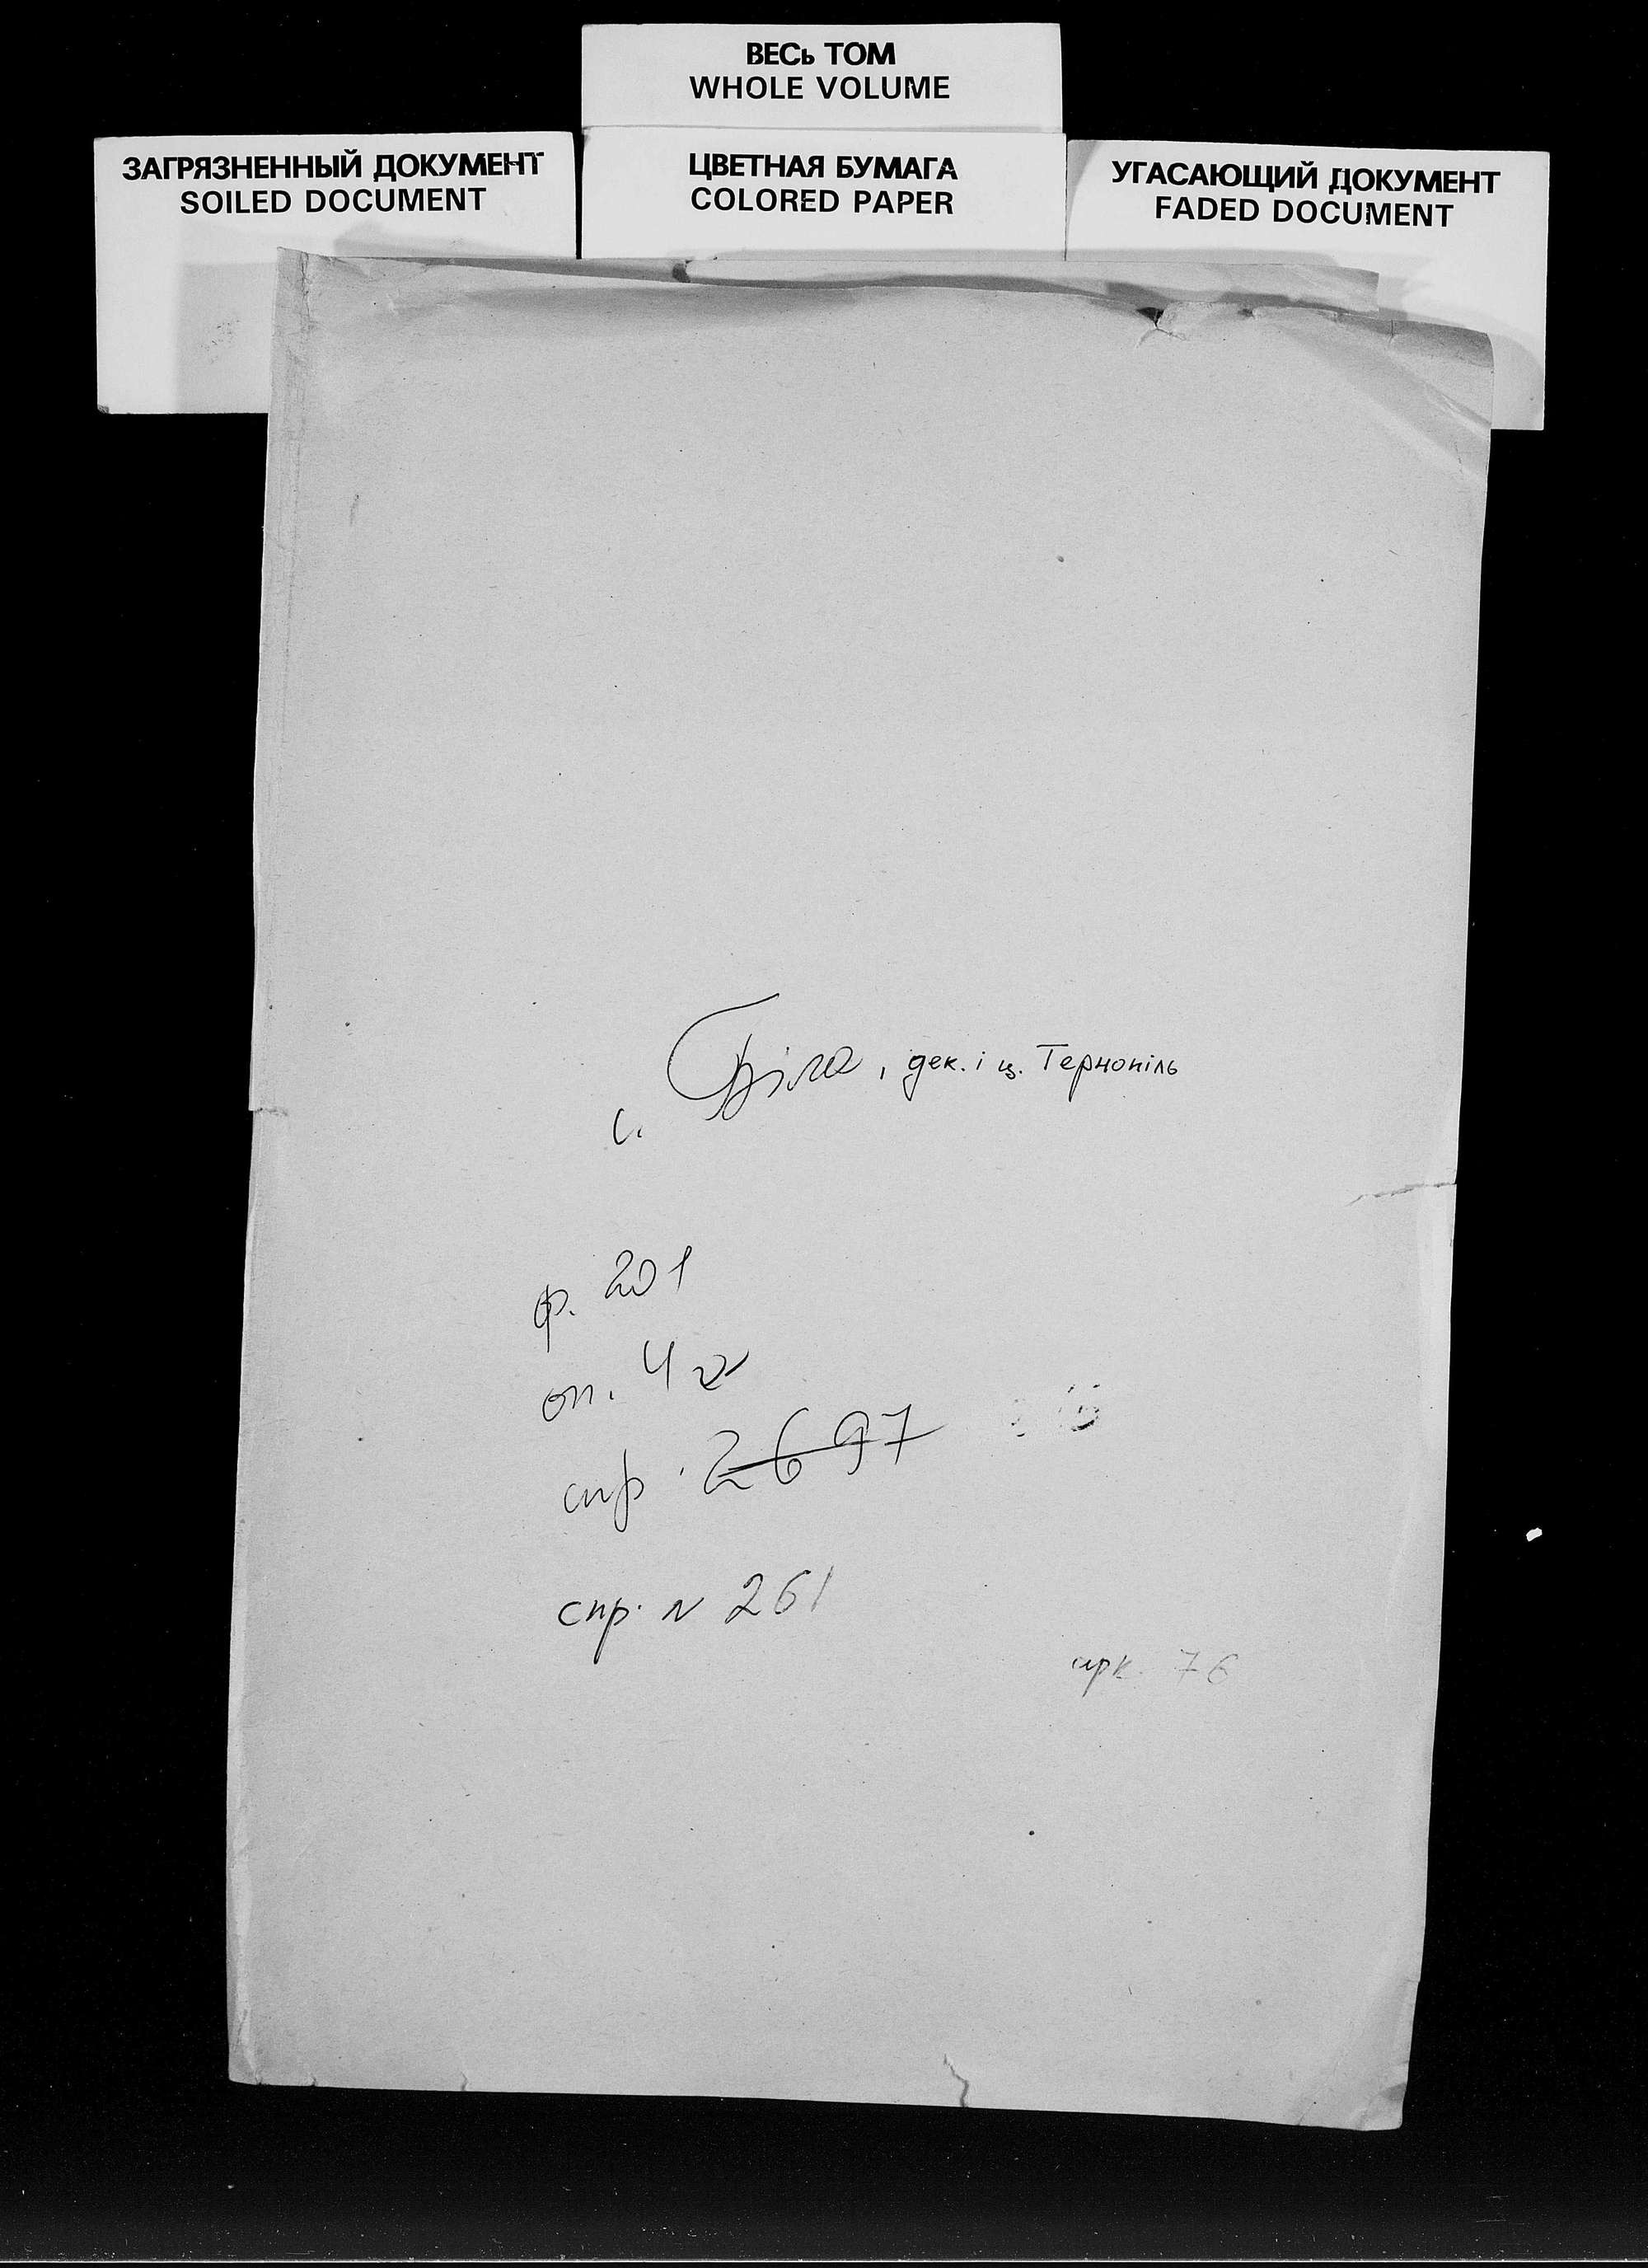 ВЕСЬ ТОМ
WHOLE VOLUME
ЗАГРЯЗНЕННЫЙ ДОКУМЕНТ
SOILED DOCUMENT
ЦВЕТНАЯ БУМАГА
COLORED PAPER
УГАСАЮЩИЙ ДОКУМЕНТ
FADED DOCUMENT
с. Біла, дек. і ц. Тернопіль
ф. 201
оп. 4а
спр. 2697
спр. N 261
арк. 76